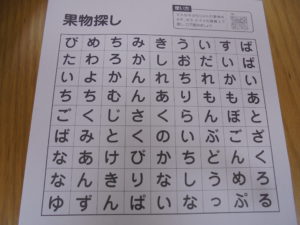 果物探し
使い方
びめちみきういすば
たわろかしおだいぱ
いよかんれちれかい
ちちむんありももあ
ごくじさくらんぼと
ばみとくのいぶござ
なあけびかちどんく
なんきりんしうめろ
ゆずんばいなっぷる